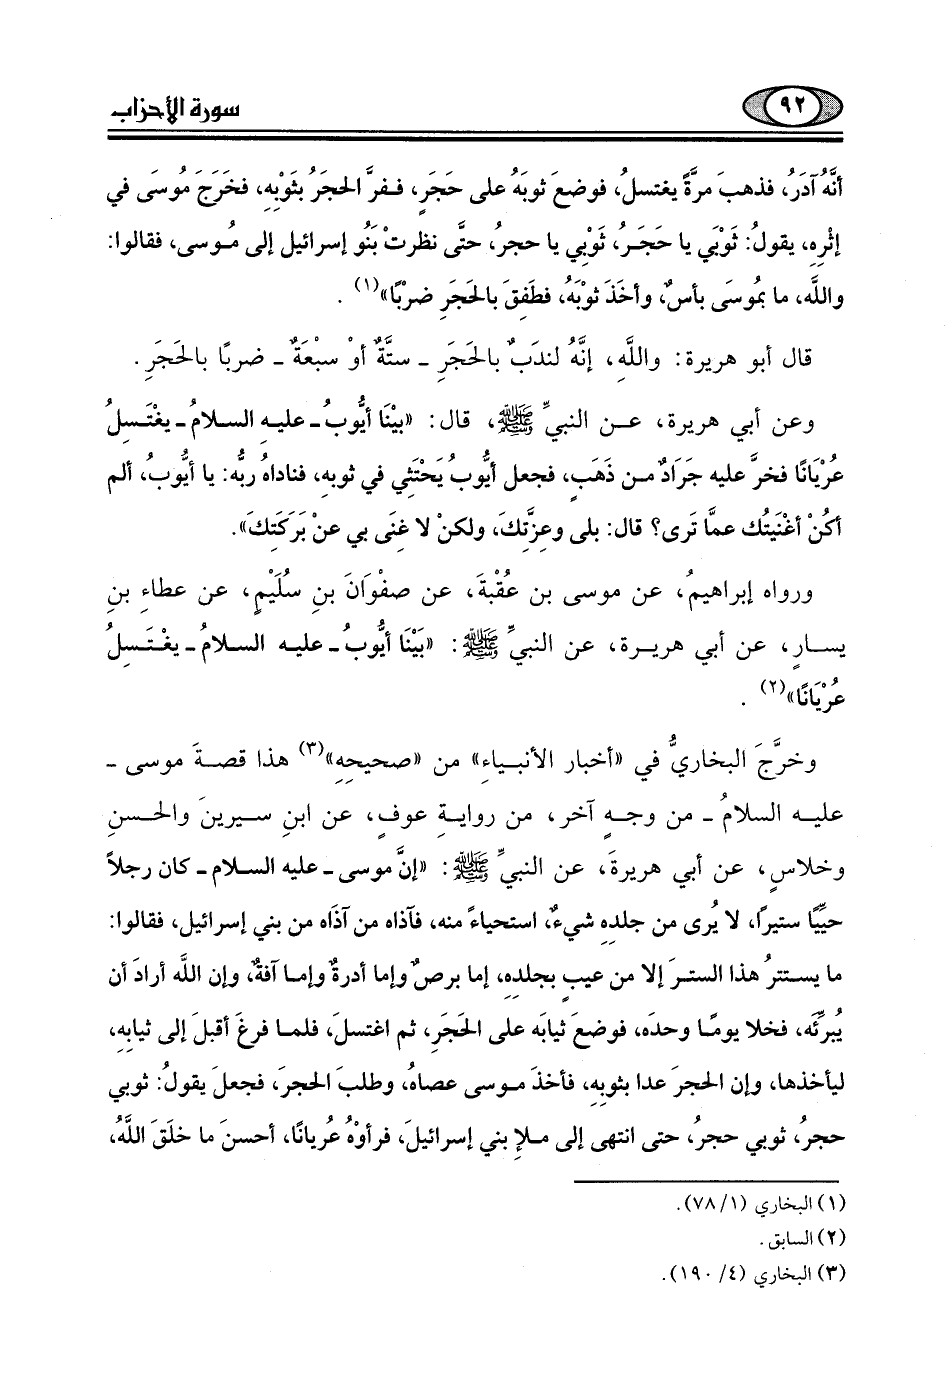 ٩٢
سورة الأحزاب
أنَّهُ آدَرُ، فذهبَ مرةً يغتسلُ، فوضعَ ثوبَهُ على حَجَرٍ، ففرَّ الحجَرُ بثَوْبِهِ، فخَرَجَ مُوسَى في
إثْرِهِ، يقولُ: ثَوْبَي يا حَجَرُ، ثوْبِي يا حجرُ، حتَّى نظرتْ بَنُو إسرائيل إلى مُوسى، فقالوا:
واللَّه، ما بمُوسَى بأسٌ، وأخَذَ ثوْبَهُ، فطَفِقَ بالحَجَرِ ضرْبًا»(١) .
قال أبو هريرة: واللَّهِ، إنَّهُ لندَبٌ بالحَجَرِ ـ ستَّةٌ أوْ سبْعَةٌ ـ ضربًا بالحَجَرِ .
وعن أبي هريرة، عن النبيِّ ﷺ، قال: «بيْنَا أيُّوبُ ـ عليه السلامُ ـ يغْتَسلُ
عُرْيَانًا فخرَّ عليه جَرَادٌ من ذَهَبٍ، فجعل أيُّوبُ يَحْتَثِي في ثوبه، فناداهُ ربُّه: يا أيُّوبُ، ألم
أكُنْ أغْنَيتُك عمَّا تَرى؟ قال: بلى وعِزَّتِكَ، ولكنْ لا غنَى بي عنْ بَرَكَتِكَ».
ورواه إبراهيمُ، عن موسى بن عُقْبةَ، عن صفْوَانَ بنِ سُلَيْمٍ، عن عطاءِ بنِ
يسارٍ، عن أبي هريرة، عن النبيِّ ﷺ: «بَيْنَا أيُّوبُ ـ عليه السلامُ ـ يغْتَسلُ
عُرْيَانًا»(٢) .
وخرَّجَ البخاريُّ في «أخبار الأنبياءِ» من «صحيحِهِ»(٣) هذا قصةَ موسى ـ
عليه السلامُ ـ من وجهٍ آخر، من روايةِ عوفٍ، عن ابنِ سيرينَ والحسنِ
وخلاسٍ، عن أبي هريرةَ، عن النبيِّ ﷺ: «إنَّ موسى ـ عليه السلام ـ كان رجلاً
حيِّيًا ستيرًا، لا يُرى من جلدِهِ شيءٌ، استحياءً منه، فآذاه من آذَاه من بني إسرائيل، فقالوا:
ما يستترُ هذا السترَ إلا من عيبٍ بجلدِهِ، إما برصٌ وإما أدرةٌ وإما آفةٌ، وإن اللَّه أرادَ أن
يُبرِّئَه، فخلا يومًا وحدَه، فوضعَ ثيابَه على الحَجَرِ، ثم اغتسلَ، فلما فرغَ أقبلَ إلى ثيابِهِ،
ليأخذها، وإن الحجرَ عدا بثوبِهِ، فأخذَ موسى عصاهُ، وطلبَ الحجرَ، فجعلَ يقولُ: ثوبي
حجرُ، ثوبي حجرُ، حتى انتهى إلى ملإ بني إسرائيلَ، فرأوْهُ عُريانًا، أحسنَ ما خلَقَ اللَّهُ،
(١) البخاري (٧٨/١).
(٢) السابق.
(٣) البخاري (٤/ ١٩٠).